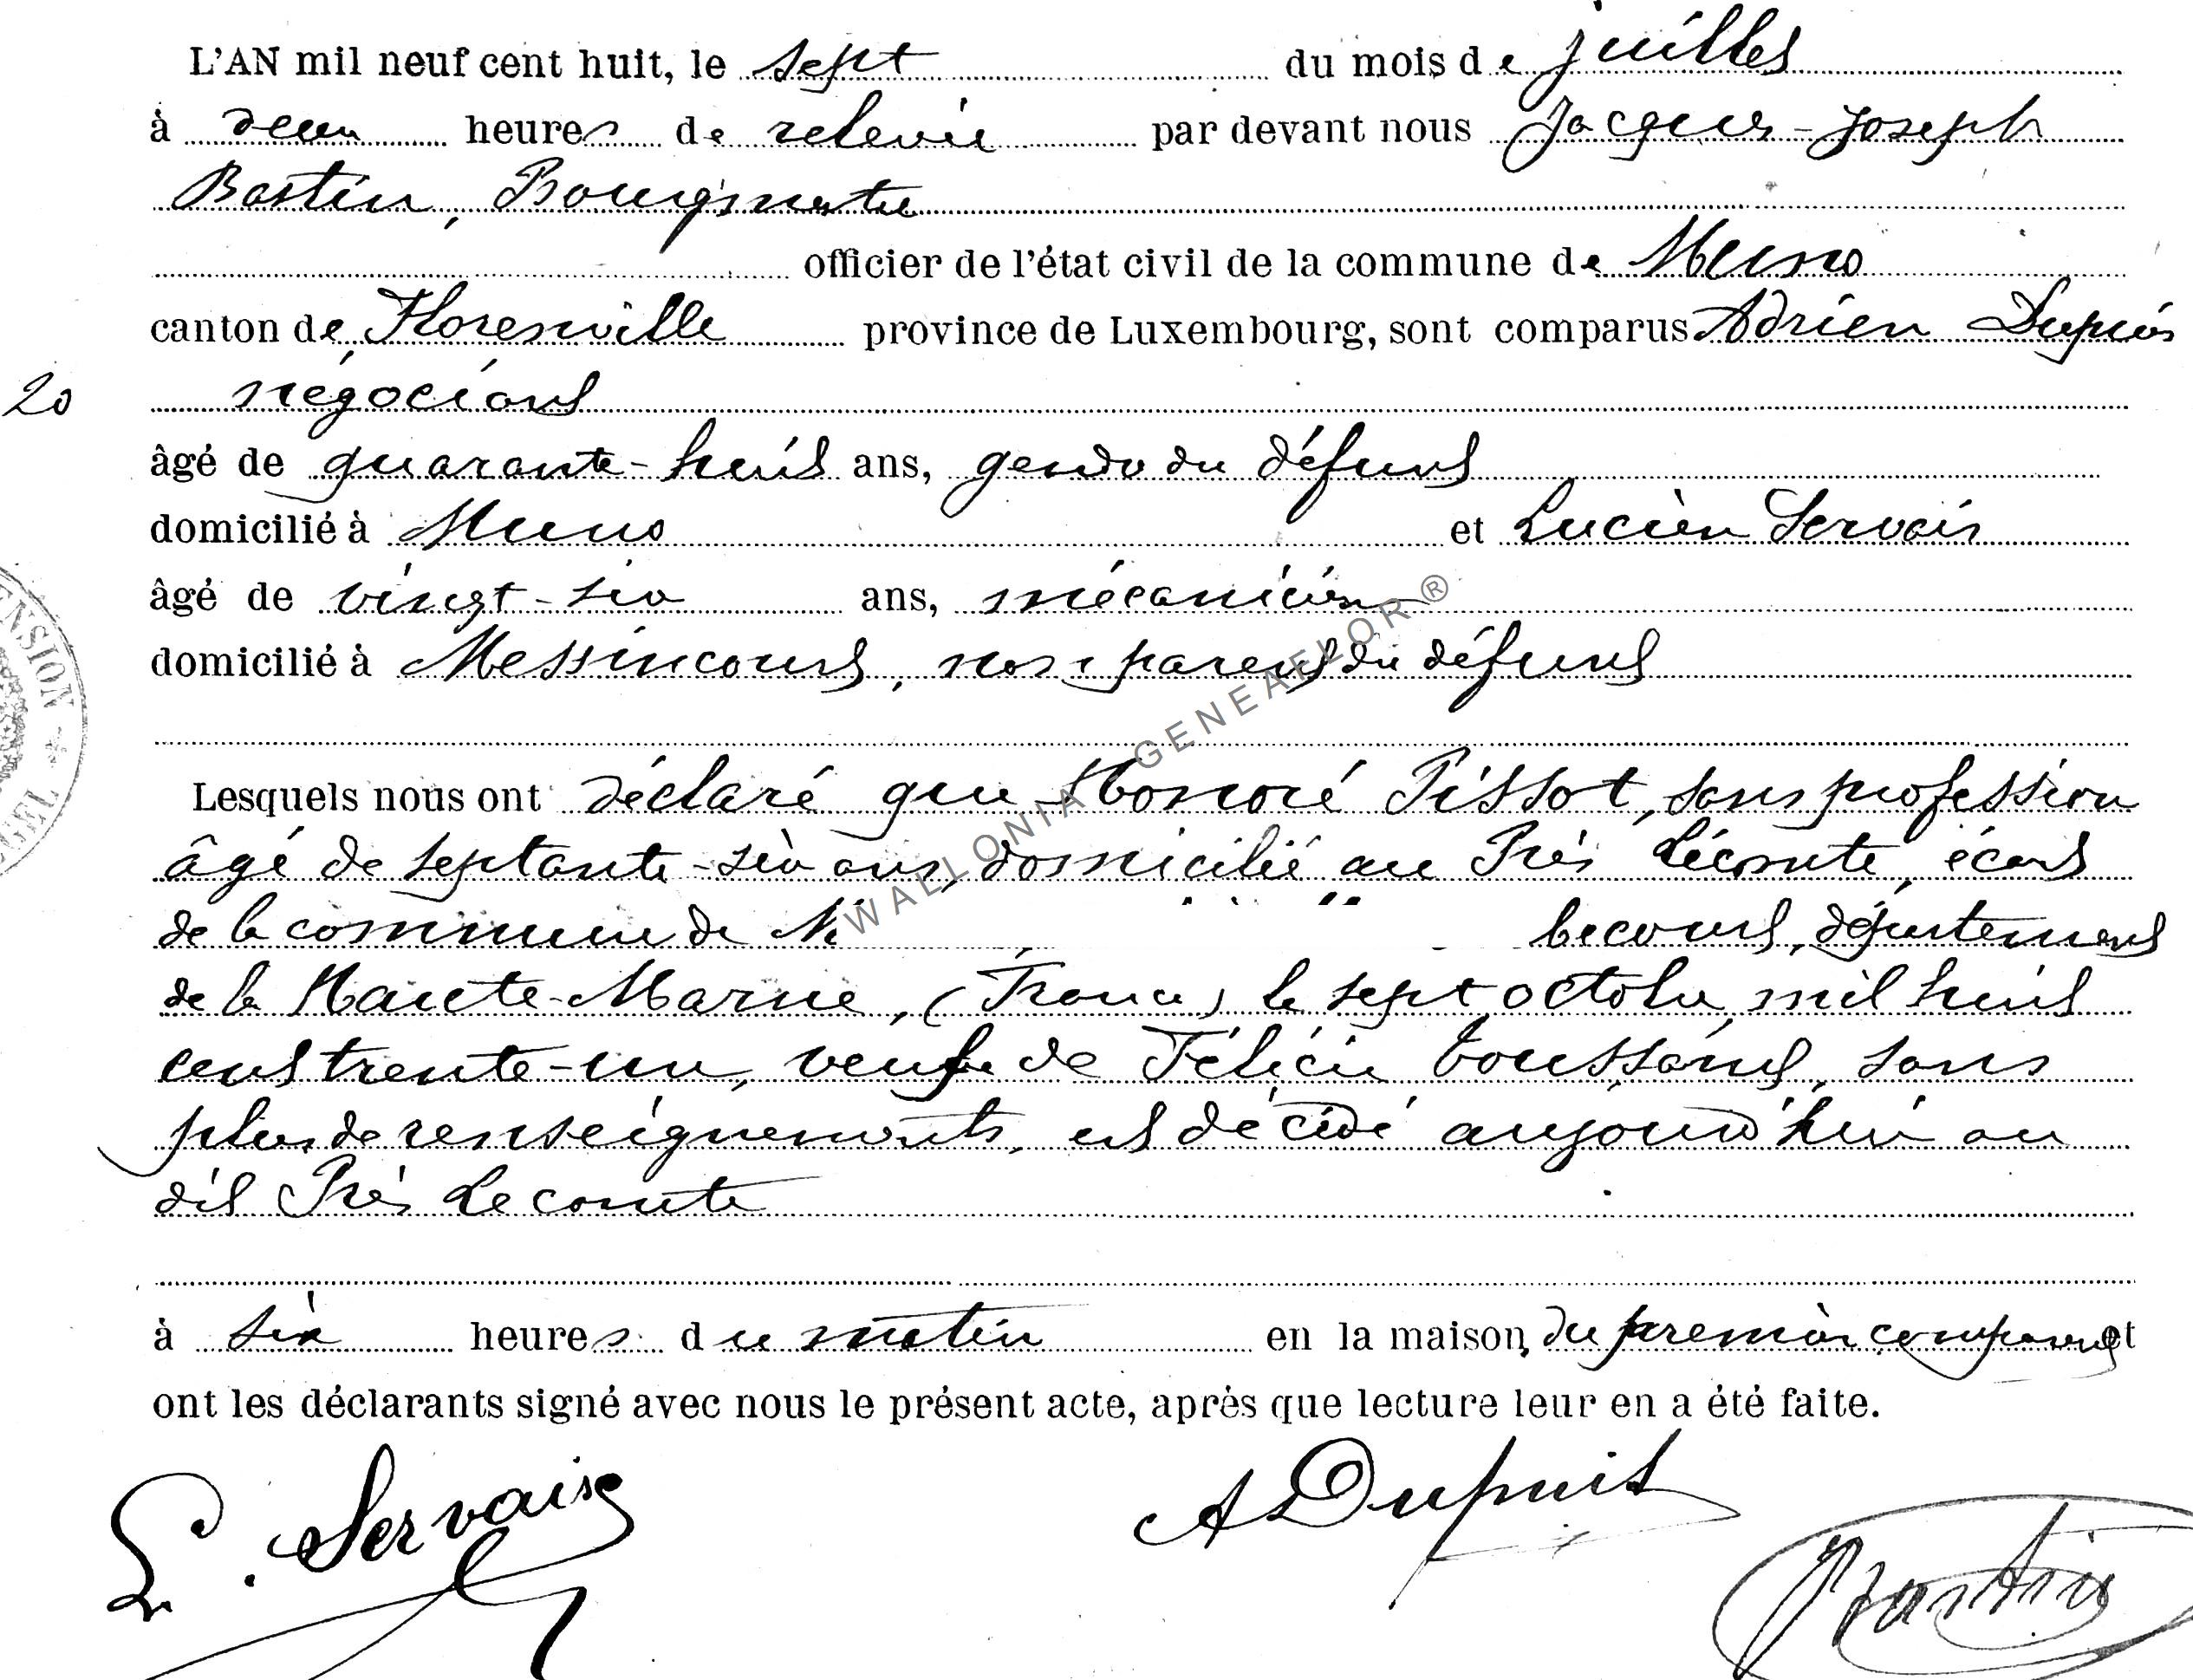 L'AN mil neuf cent huit, le sept du mois de juillet
à deux heures de relevée par devant nous Jacques-Joseph
Bastin, Bourgmestre
officier de l'état civil de la commune de Muno
canton de Florenville province de Luxembourg, sont comparus Adrien Dupuis
20 négociant
âgé de quarante-huit ans, gendre du défunt
domicilié à Muno et Lucien Servais
âgé de vingt-six ans, mécanicien
domicilié à Messincourt, non parent du défunt
Lesquels nous ont déclaré que Honoré Pissot, sans profession
âgé de septante-six ans, domicilié au Prés Lecomte, écart
de la commune de becourt, département
de la Haute-Marne, (France) le sept octobre mil huit
cent trente-un, veuf de Félicie Toussaint, sans
plus de renseignements, est décédé aujourd'hui au
dit Prés Lecomte
à six heures du matin en la maison du premier comparant et
ont les déclarants signé avec nous le présent acte, après que lecture leur en a été faite.
L. Servais A Dupuit
Bastin
WALLONIA GENEAFLOR ®